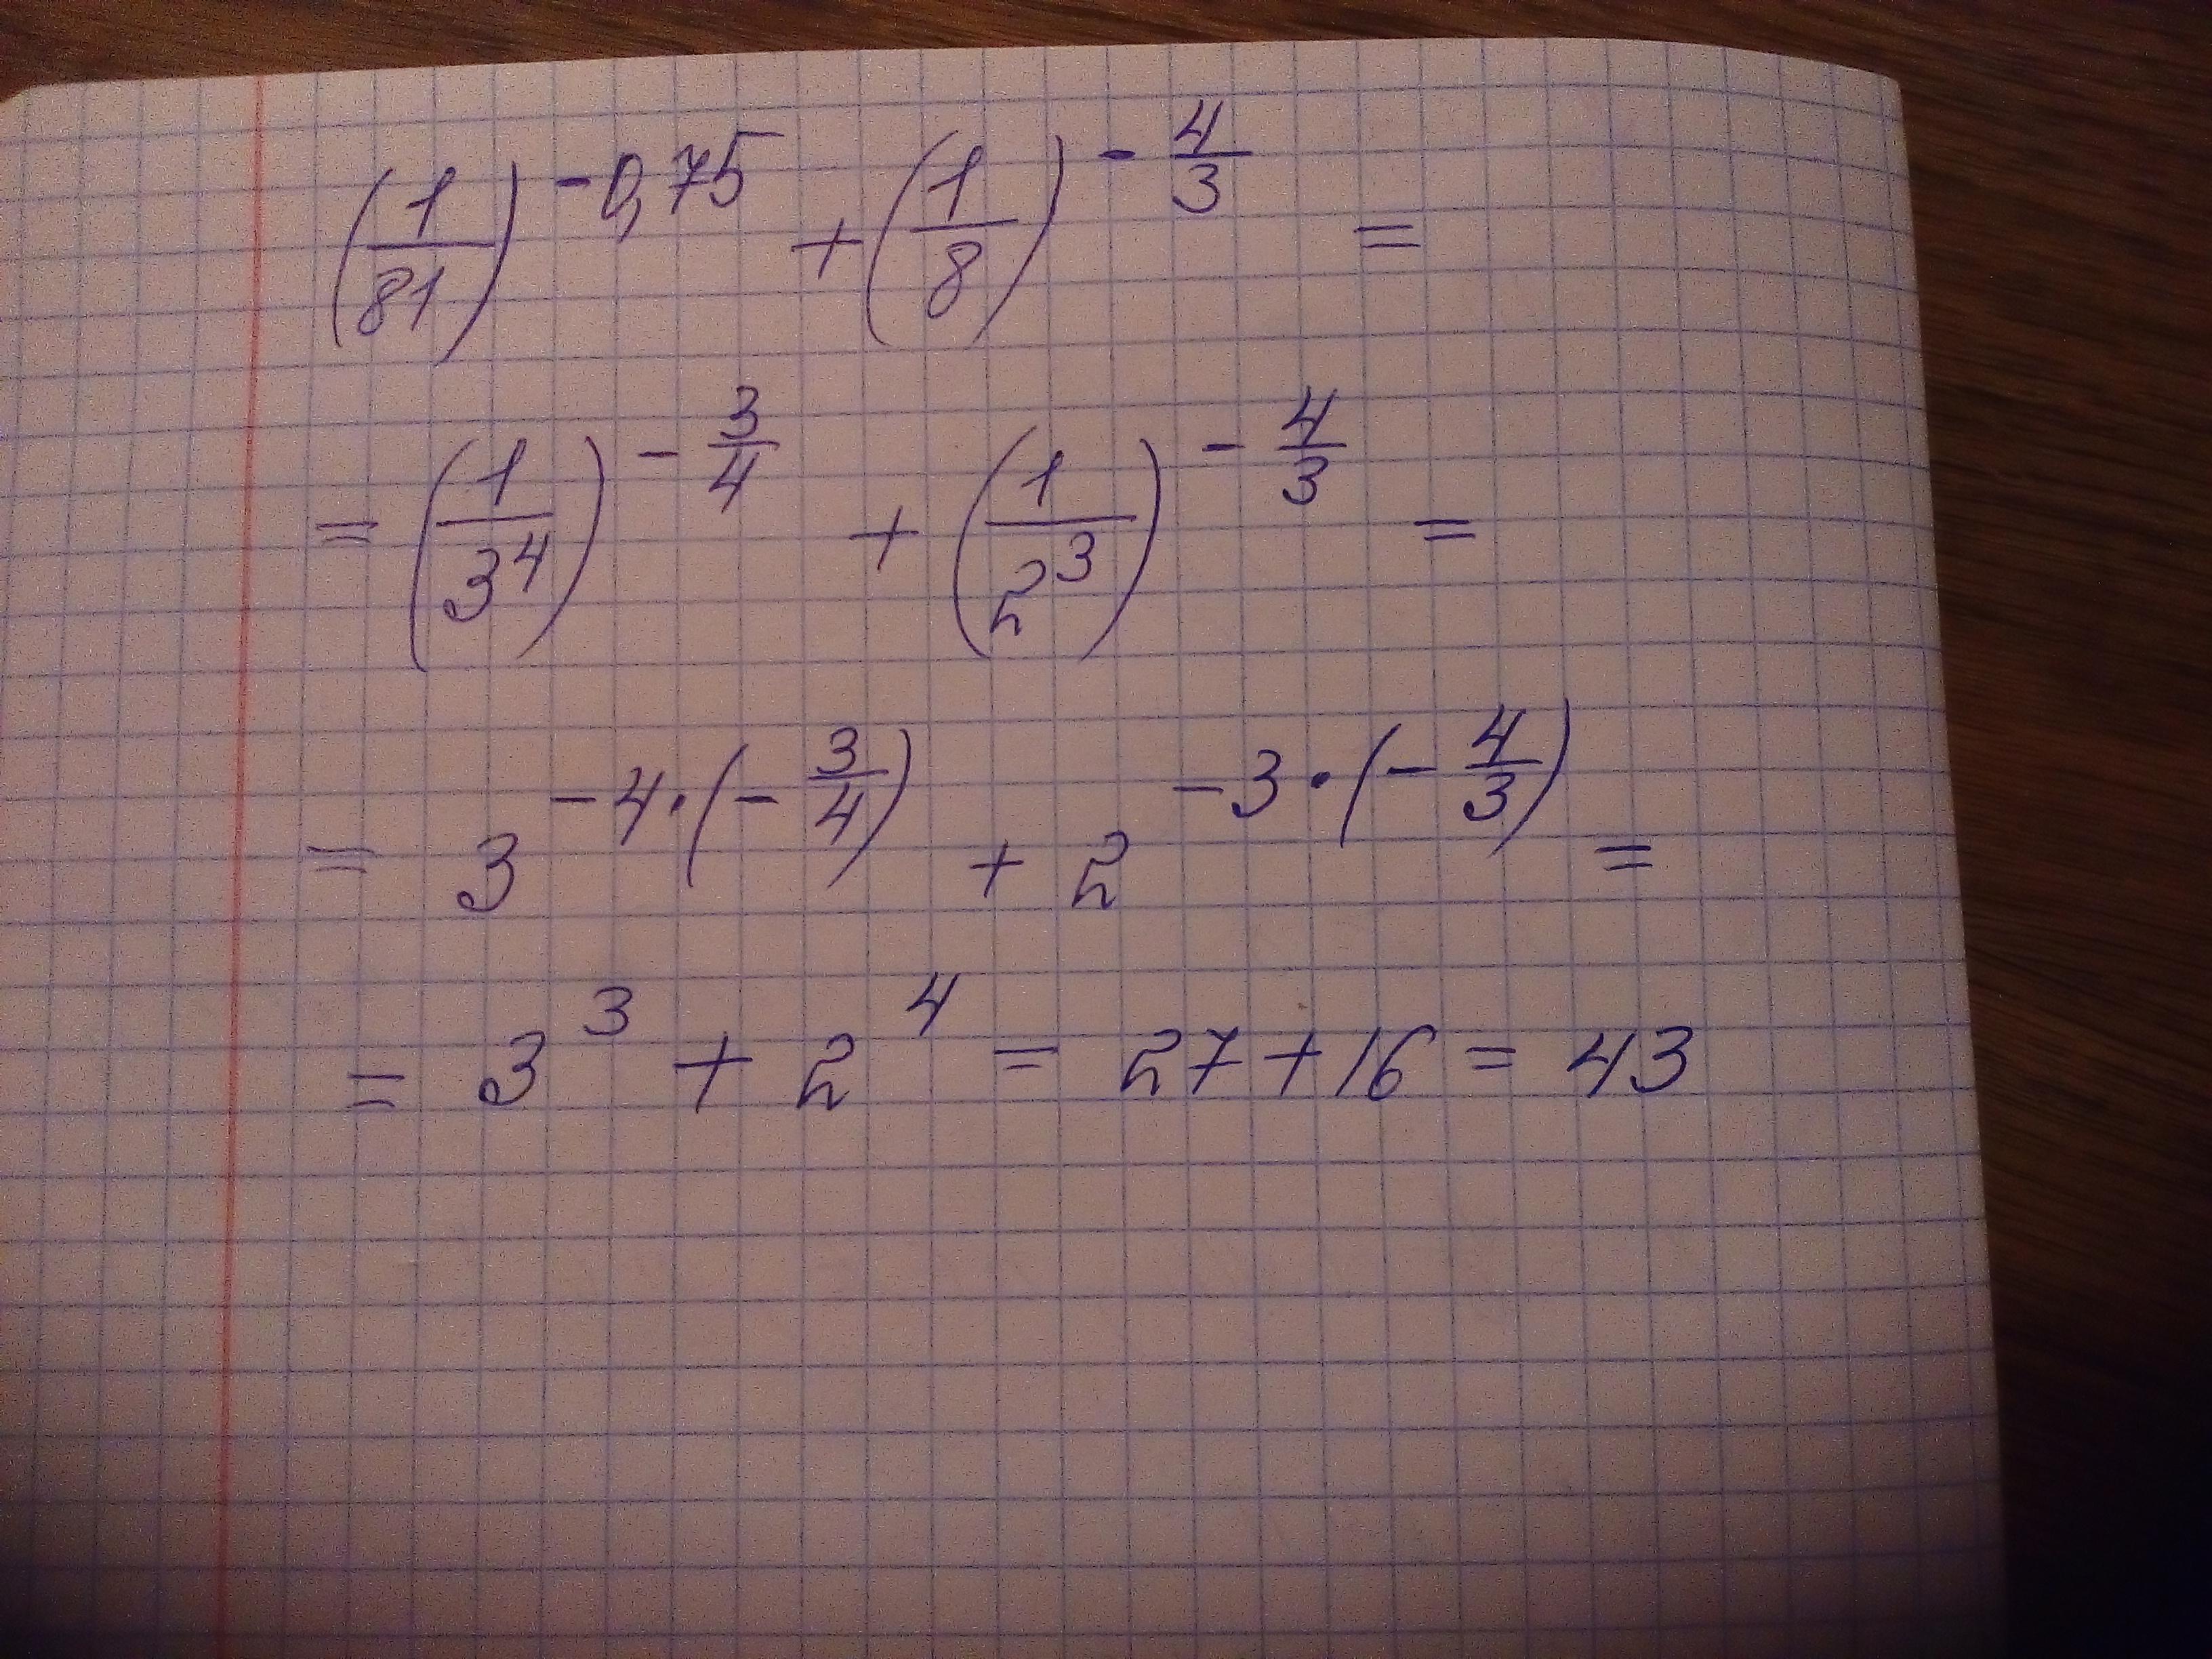 (1/81)^(-0,75) + (1/8)^(-4/3) =
= (1/3^4)^(-3/4) + (1/2^3)^(-4/3) =
= 3^(-4·(-3/4)) + 2^(-3·(-4/3)) =
= 3^3 + 2^4 = 27 + 16 = 43